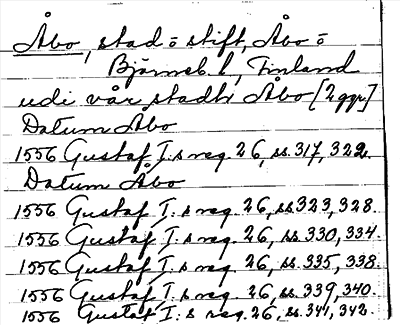 Åbo, stad o stift, Åbo o
Björneb. l, Finland
udi vår stadh Åbo [2 ggr]
Datum Åbo
1556 Gustaf I:s reg. 26, ss. 317, 322.
Datum Åbo
1556 Gustaf I:s reg. 26, ss. 323, 328.
1556 Gustaf I:s reg. 26, ss. 330, 334.
1556 Gustaf I:s reg. 26, ss. 335, 338.
1556 Gustaf I:s reg. 26, ss. 339, 340.
1556 Gustaf I:s reg. 26, ss. 341, 342.